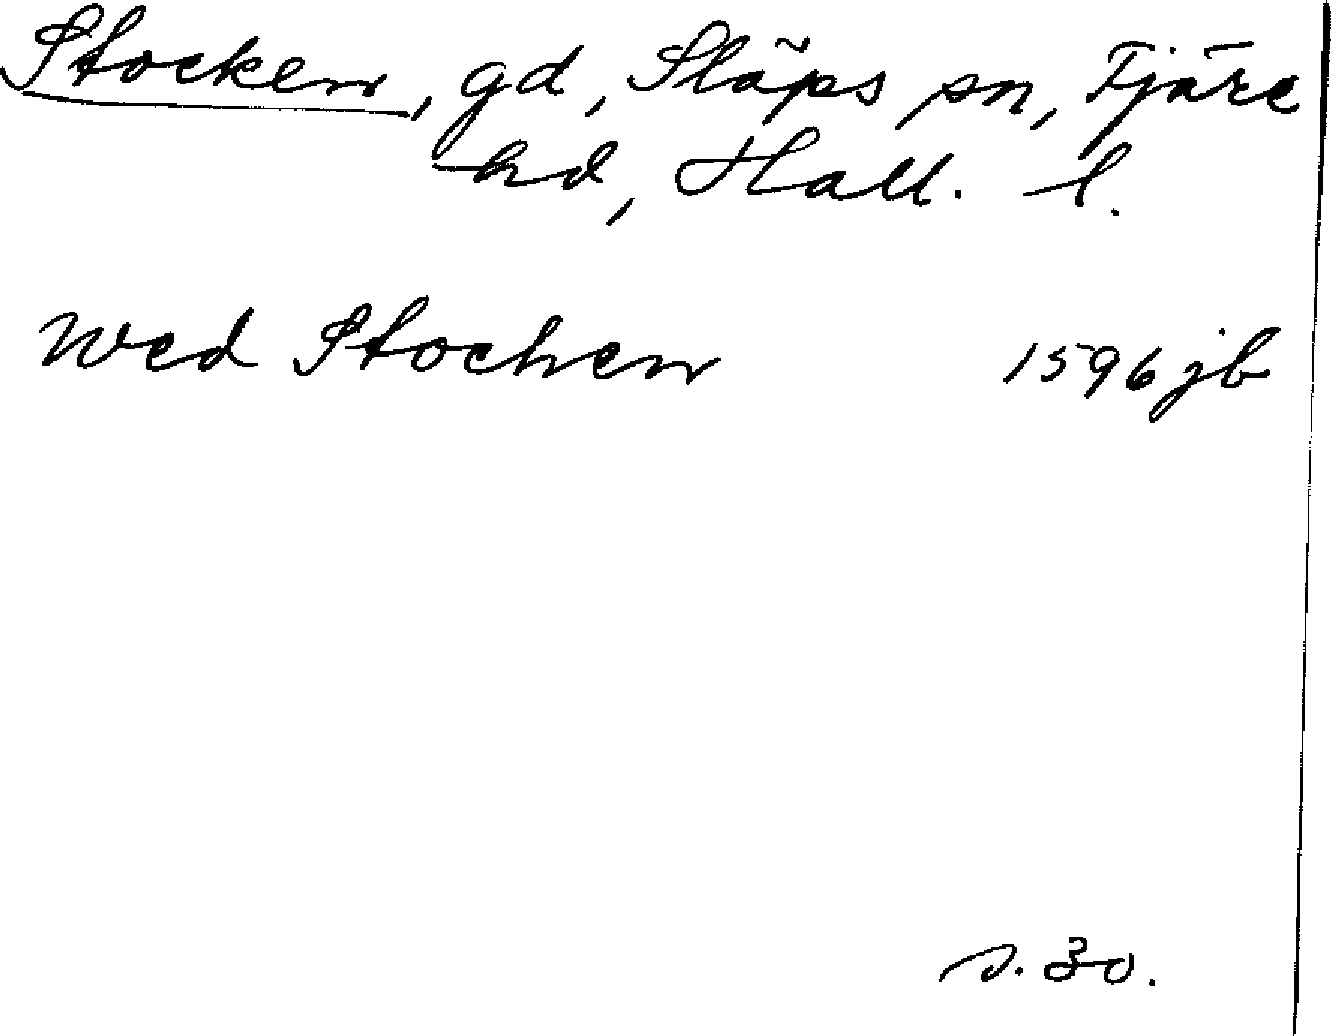 Stocken, gd, Släps sn, Fjäre
hd, Hall. l.
Wed Stochen 1596 jb
s. 30.